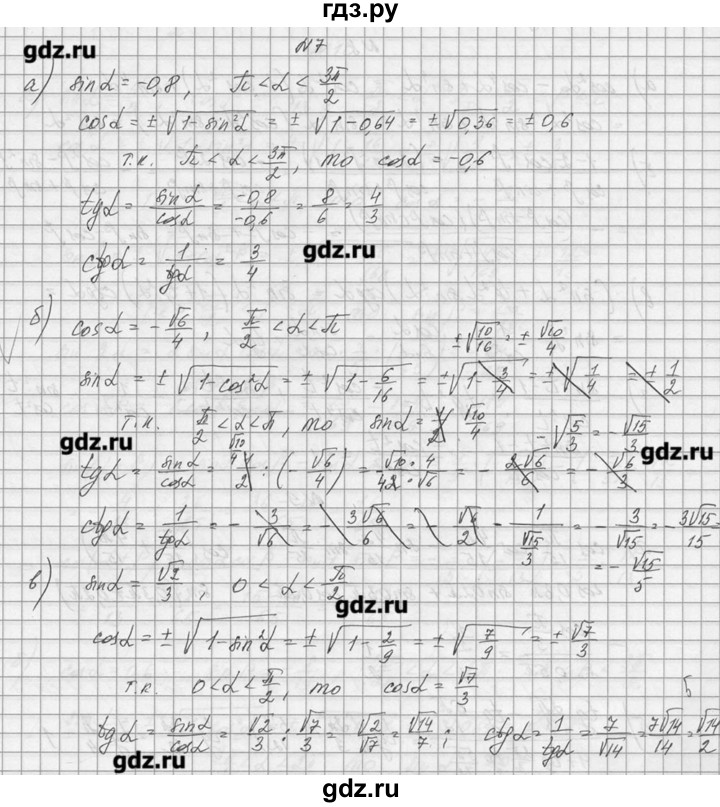 гдз.ру
gdz.ru
№7
а) sinα = -0,8, π < α < 3π/2
cosα = ±√(1-sin²α) = ±√(1-0,64) = ±√0,36 = ±0,6
т.к. π < α < 3π/2, то cosα = -0,6
tgα = sinα/cosα = -0,8/-0,6 = 8/6 = 4/3
gdz.ru
ctgα = 1/tgα = 3/4
б) cosα = -√6/4, π/2 < α < π
±√(10/16) = ±√10/4
sinα = ±√(1-cos²α) = ±√(1-6/16) = ±√(1-3/4) = ±√(1/4) = ±1/2
т.к. π/2 < α < π, то sinα = √10/4
-√(5/3) = -√15/3
gdz.ru
gdz.ru
tgα = sinα/cosα = √10/4 : (-√6/4) = -√10·4/4·√6 = -2√6/6 = -√6/3
ctgα = 1/tgα = -3/√6 = -3√6/6 = -√6/2 -1/(√15/3) = -3/√15 = -3√15/15
= -√15/5
в) sinα = √2/3, 0 < α < π/2
gdz.ru
cosα = ±√(1-sin²α) = ±√(1-2/9) = ±√(7/9) = ±√7/3
т.к. 0<α<π/2, то cosα = √7/3
tgα = sinα/cosα = √2/3 : √7/3 = √2/√7 = √14/7; ctgα = 1/tgα = 7/√14 = 7√14/14 = √14/2
gdz.ru
gdz.ru